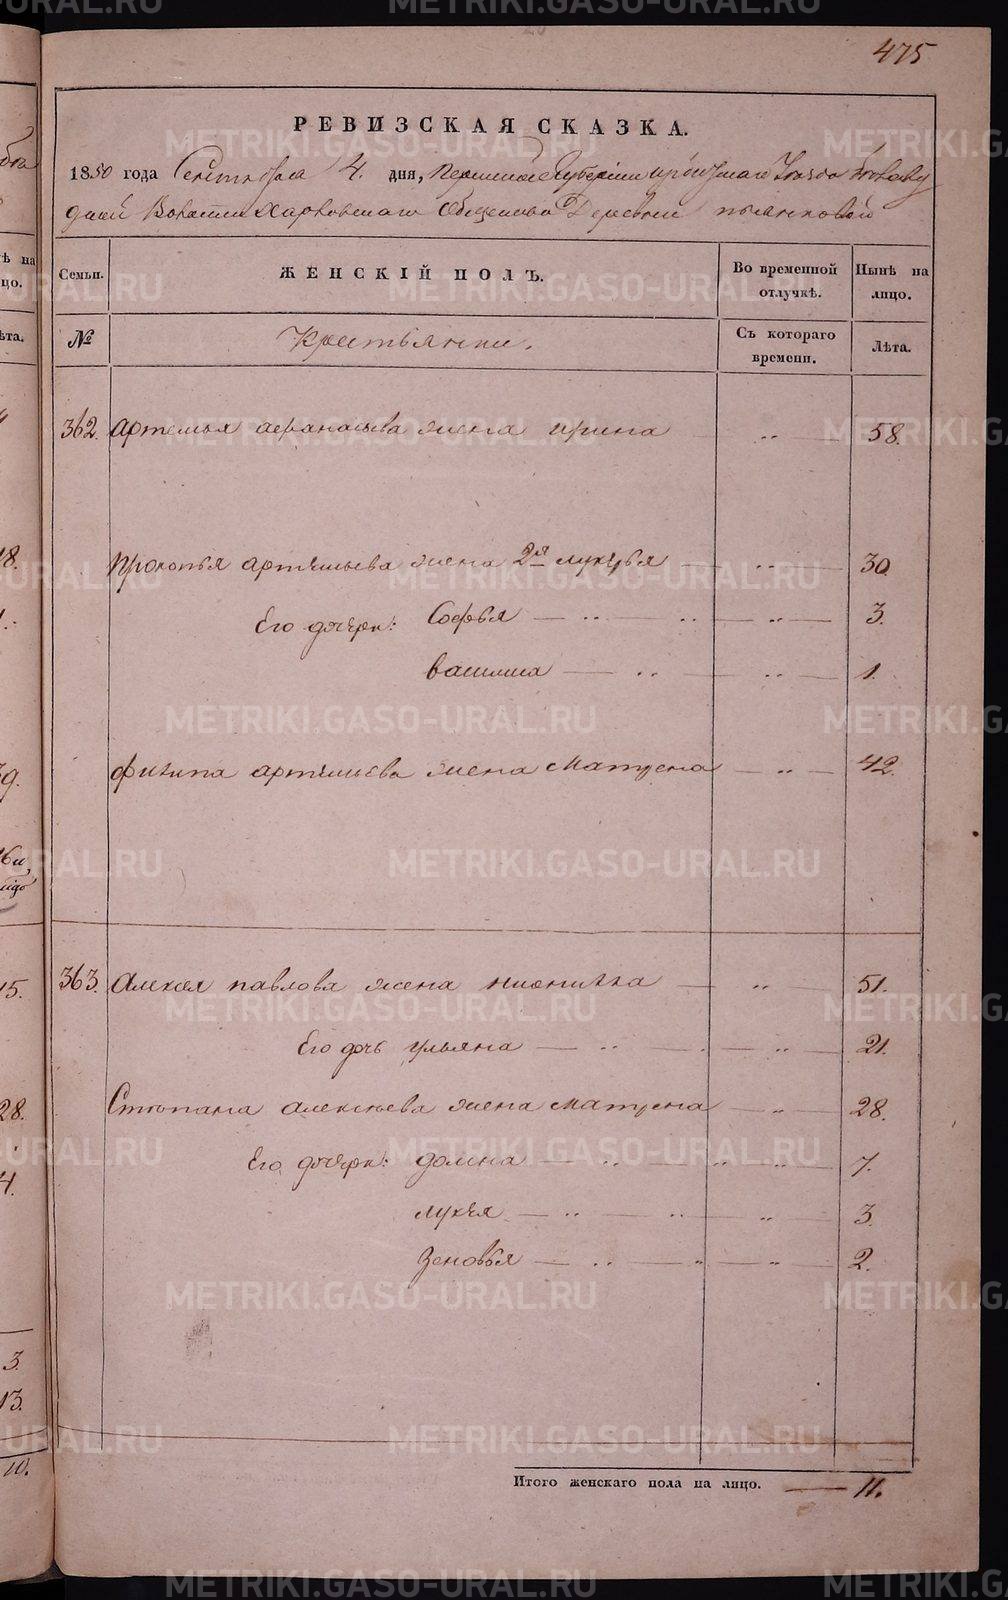 475
РЕВИЗСКАЯ СКАЗКА.
1850 года Сентября 4. дня, Пермской Губернии Ирбитскаго Уезда
Волости Харловскаго Общества Деревни
Семьи.
ЖЕНСКІЙ ПОЛЪ.
Во временной отлучкѣ.
Нынѣ на лицо.
№
Крестьянки.
Съ котораго времени.
Лѣта.
362. Артемья афанасьева жена ирина — „ — 58.
Прокопья артемьева жена 2я лукерья — „ — 30.
Его дочери: Софья — „ — „ — „ — 3.
василиса — „ — „ — 1.
филипа артемьева жена матрена — „ — 42.
363. Алексея павлова жена — „ — 51.
Его дочь ульяна — „ — „ — 21.
Степана алексеева жена матрена — „ — 28.
Его дочери: домна — „ — „ — „ — 7.
лукея — „ — „ — „ — 3.
Зеновья — „ — „ — „ — 2.
Итого женскаго пола на лицо. — 11.
METRIKI.GASO-URAL.RU